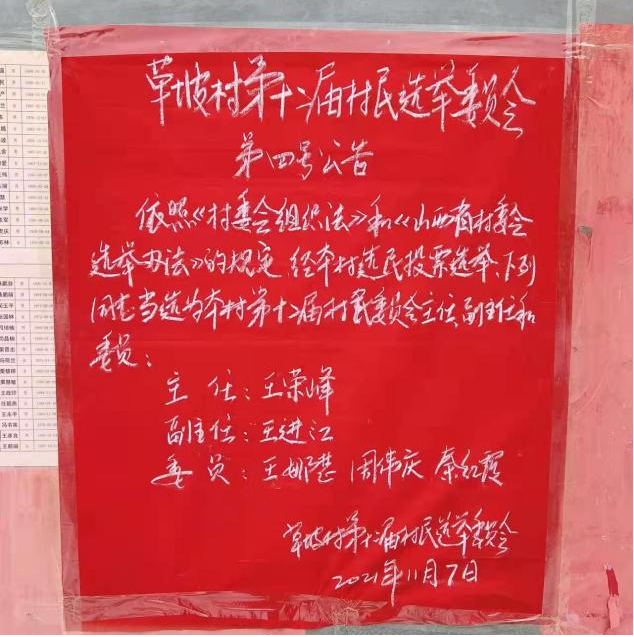 草坡村第十二届村民选举委员会
第四号公告
依照《村委会组织法》和《山西省村委会
选举办法》的规定,经本村选民投票选举、下列
同志当选为本村第十二届村民委员会主任、副主任和
委员:
主 任:王荣峰
副主任:王进江
委 员:王娜慧 周伟庆 秦红霞
草坡村第十二届村民选举委员会
2021年11月7日